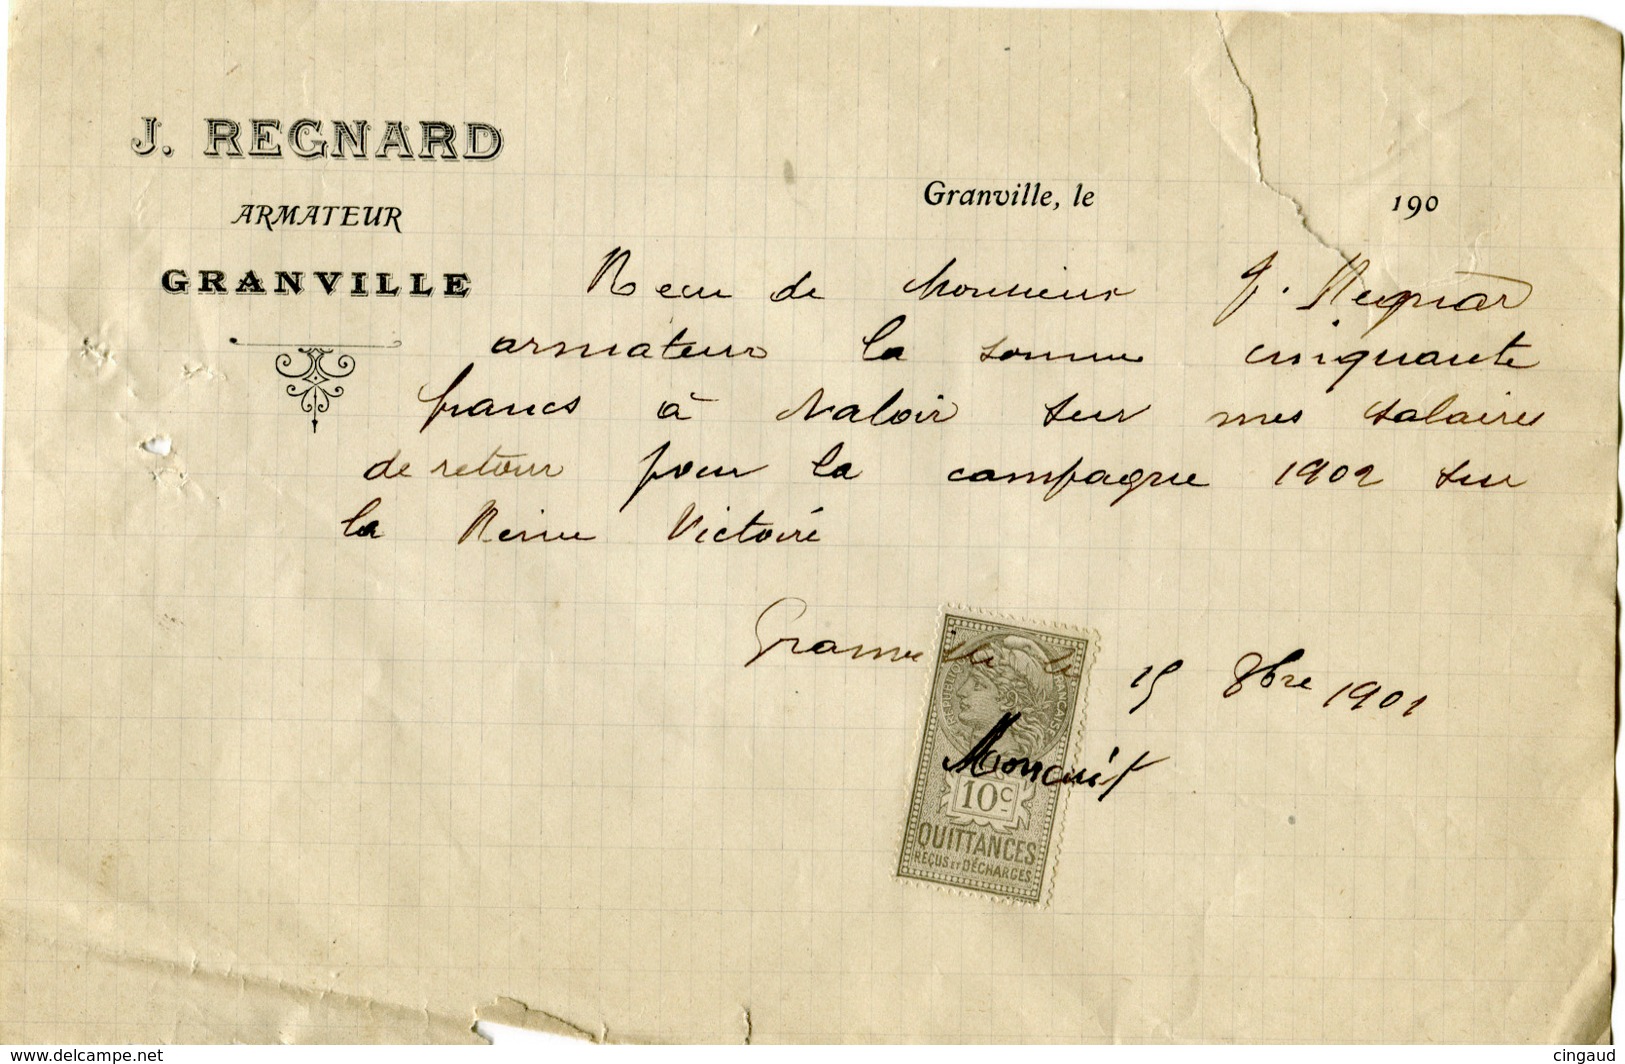 J. REGNARD
ARMATEUR
GRANVILLE
Granville, le 190
Recu de Monsieur J. Regnar
armateur la somme cinquante
francs à Valoir sur mes salaires
de retour pour la campagne 1902 sur
la Reine Victoire
Granville le 15 8bre 1902
REPUBLIQUE FRANÇAISE
Moncuit
10c
QUITTANCES
REÇUS ET DÉCHARGES
www.delcampe.net
cingaud